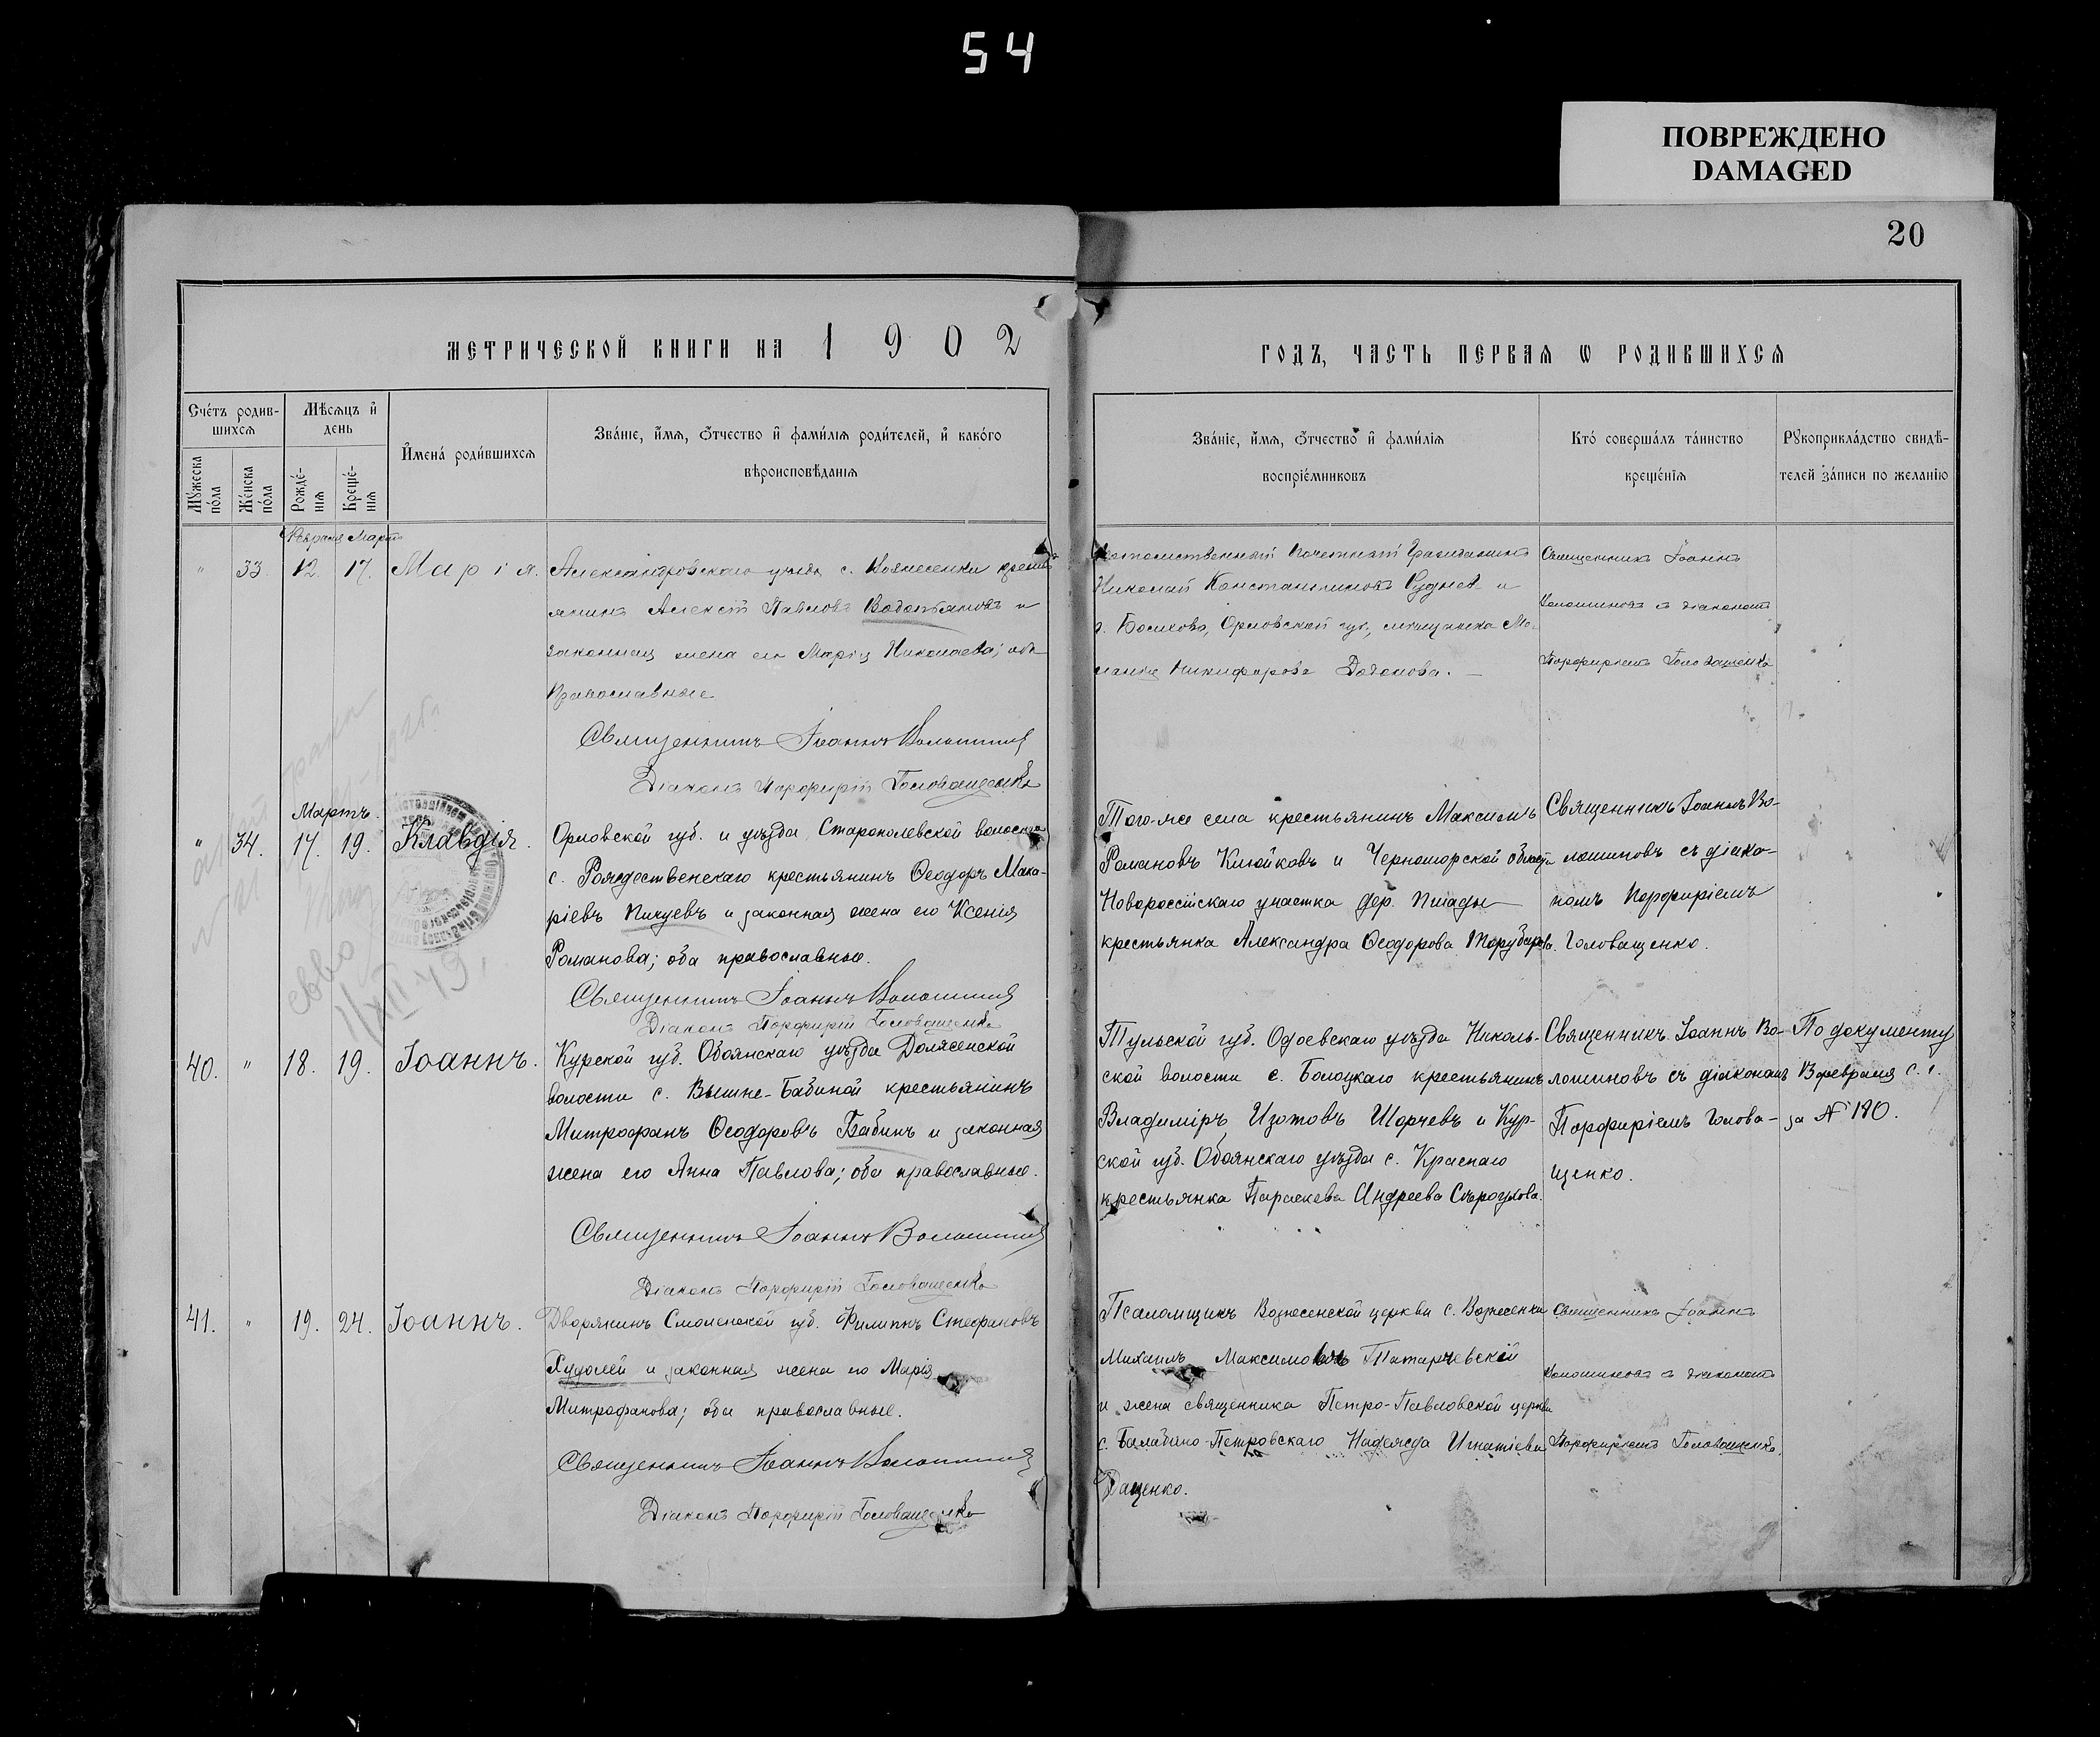 54
ПОВРЕЖДЕНО
DAMAGED
20
МЕТРИЧЕСКОЙ КНИГИ НА 1902
ГОДЪ, ЧАСТЬ ПЕРВАЯ Ѡ РОДИВШИХСЯ
Счётъ родив-
шихся
Мѣсяцъ и
день
Имена родившихся
Званіе, имя, отчество и фамилія родителей, и какого
вѣроисповѣданія
Мужеска пола
Женска пола
Рожде-
нія
Креще-
нія
Званіе, имя, отчество и фамилія
воспріемниковъ
Кто совершалъ таинство
крещенія
Рукоприкладство свидѣ-
телей записи по желанію
Февраля Мартъ
" 33. 12. 17. Марія.
Александровскаго уѣзда с. Вознесенки крестья-
янинъ Алексѣй Павловъ Водопьяновъ и
законная жена его Марія Николаева; оба
православные
Священникъ Іоаннъ Волошинов
Діаконъ Порфирій Головащенко
Потомственный Почетный Гражданинъ
Николай Константиновъ Руднев и
г. Болхова, Орловской губ., мѣщанка Ме-
ланія Никифорова Додонова.
Священникъ Іоаннъ
Волошиновъ с діакономъ
Порфиріемъ Головащенко
Мартъ.
" 34. 17. 19. Клавдія.
Орловской губ. и уѣзда Старополевской волости
с. Рождественскаго крестьянинъ Ѳеодоръ Мака-
ріевъ Пикуевъ и законная жена его Ксенія
Романова; оба православные.
Священникъ Іоаннъ Волошинов
Діаконъ Порфирій Головащенко
Того-же села крестьянинъ Максимъ
Романовъ Клюйковъ и Черноморской области
Новороссійскаго участка дер. Пшады
крестьянка Александра Ѳеодорова Торубарова.
Священникъ Іоаннъ Во-
лошиновъ съ діако-
номъ Порфиріемъ
Головащенко.
1/XII 49.
40. " 18. 19. Іоаннъ.
Курской губ. Обоянскаго уѣзда Долженской
волости с. Вышне-Бабиной крестьянинъ
Митрофанъ Ѳеодоровъ Бабинъ и законная
жена его Анна Павлова; оба православные.
Священникъ Іоаннъ Волошинов
Діаконъ Порфирій Головащенко
Тульской губ. Одоевскаго уѣзда Николь-
ской волости с. Болоцкаго крестьянинъ
Владиміръ Изотовъ Шорчевъ и Кур-
ской губ. Обоянскаго уѣзда с. Краснаго
крестьянка Параскева Андреева Сѣроухова.
Священникъ Іоаннъ Во-
лошиновъ съ діакономъ
Порфиріемъ Голова-
щенко.
По документу
13 февраля с. г.
за № 180.
41. " 19. 24. Іоаннъ.
Дворянинъ Смоленской губ. Филиппъ Стефановъ
Худолей и законная жена его Марія
Митрофанова; оба православные.
Священникъ Іоаннъ Волошинов
Діаконъ Порфирій Головащенко
Псаломщикъ Вознесенской церкви с. Вознесенки
Михаилъ Максимовъ Татарчевскій
и жена священника Петро-Павловской церкви
с. Балабино-Петровскаго Надежда Игнатіева
Даценко.
Священникъ Іоаннъ
Волошиновъ с діакономъ
Порфиріемъ Головащенко.